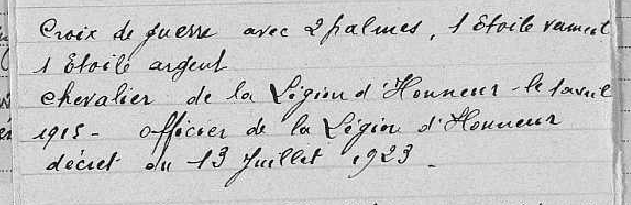 Croix de guerre avec 2 palmes, 1 étoile vermeil
1 étoile argent
chevalier de la Légion d'Honneur le 1 avril
1915 - officier de la Légion d'Honneur
décret du 13 Juillet 1923.